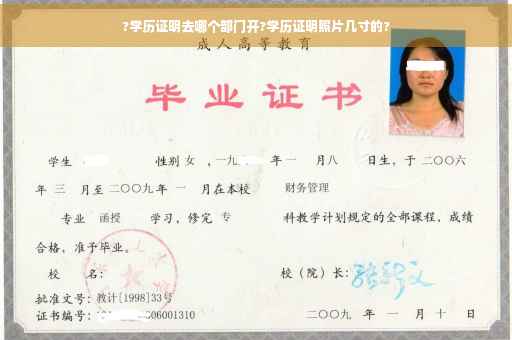 ?学历证明去哪个部门开?学历证明照片几寸的?
成人高等教育
毕业证书
学生 性别 女 ，一九 年一 月八 日生，于二〇〇六
年 三 月至二〇〇九年 一 月在本校 财务管理
专业 函授 学习，修完 专 科教学计划规定的全部课程，成绩
合格，准予毕业。
校 名： 校（院）长：
批准文号：教计[1998]33号
证书编号： 06001310 二〇〇九 年 一 月 十 日